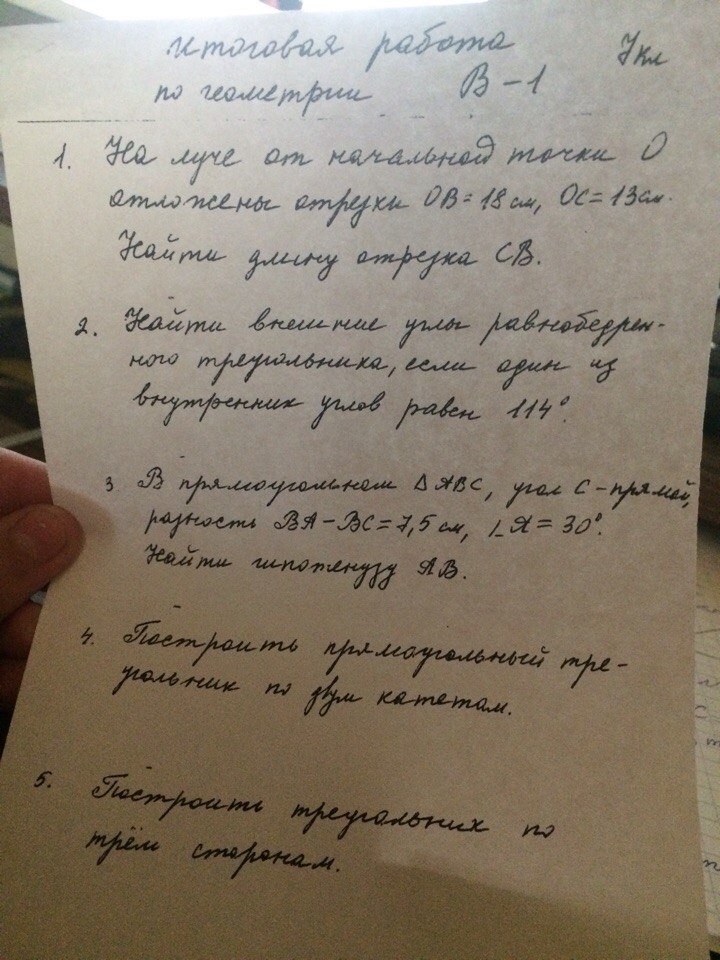 Итоговая работа 7кл
по геометрии В-1
1. На луче от начальной точки О
отложены отрезки ОВ=18 см, ОС=13 см.
Найти длину отрезка СВ.
2. Найти внешние углы равнобедрен-
ного треугольника, если один из
внутренних углов равен 114°.
3. В прямоугольном ΔАВС, угол С-прямой,
разность ВА-ВС=7,5 см, ∟А=30°.
Найти гипотенузу АВ.
4. Построить прямоугольный тре-
угольник по двум катетам.
5. Построить треугольник по
трём сторонам.